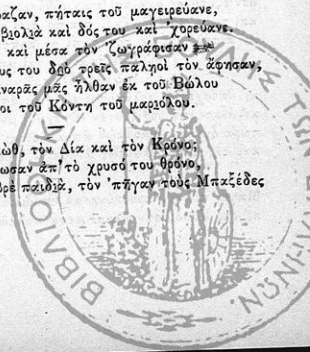 αζαν, πήταις τοῦ μαγειρεύανε,
βιολιὰ καὶ δός του καὶ χορεύανε.
καὶ μέσα τὸν ζωγράφισαν
υς του δπὸ τρεῖς παληοὶ τὸν ἄφησαν,
ναρᾶς μᾶς ἦλθαν ἐκ τοῦ Βώλου
οι τοῦ Κόντη τοῦ μαριόλου.
ώθ, τὸν Δία καὶ τὸν Κρόνο;
ωσαν ἀπ' τὸ χρυσό του θρόνο,
βρὲ παιδιὰ, τὸν 'πῆγαν τοὺς Μπαξέδες
ΤΩΝ